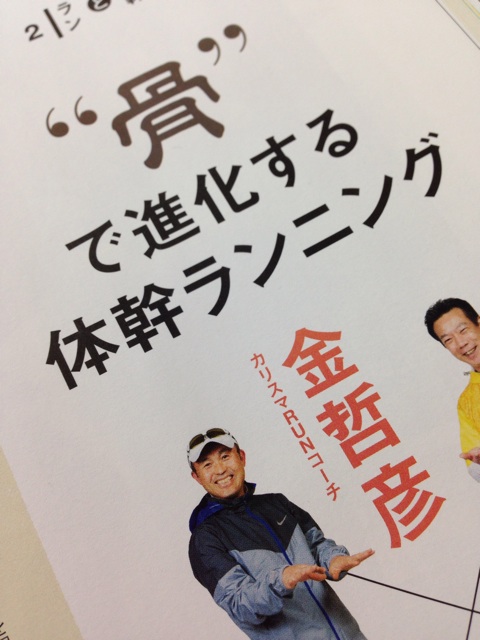 “骨”
で進化する
体幹ランニング
カリスマRUNコーチ
金哲彦